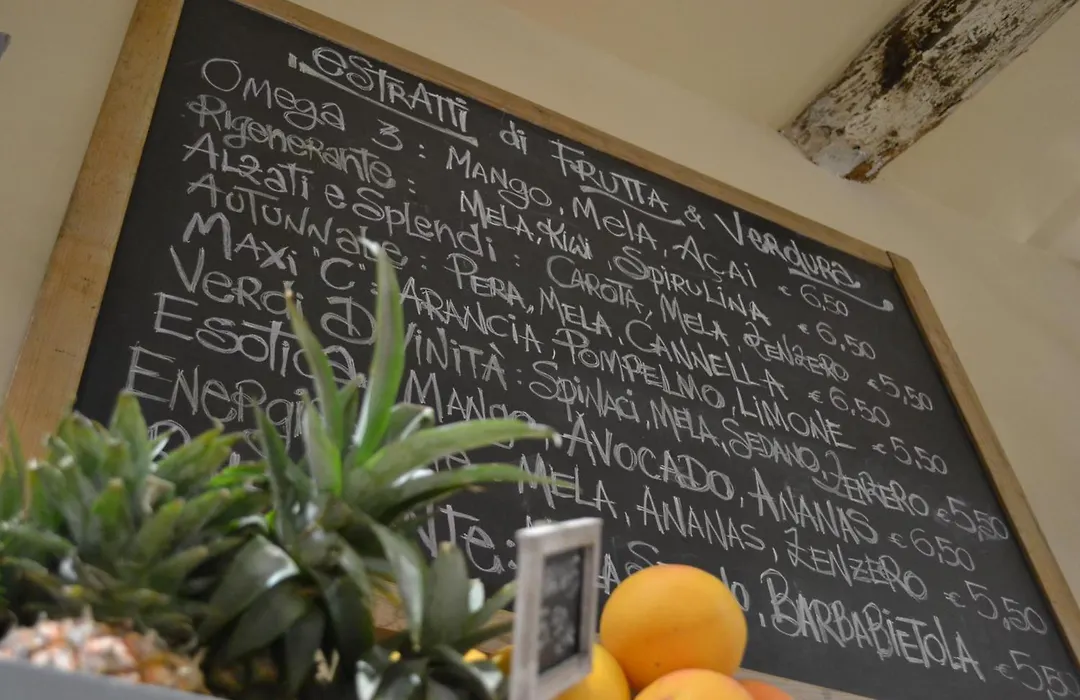 ESTRATTI di FRUTTA & VERDURA
Omega 3: MANGO, MELA, AÇAI € 6,50
Rigenerante: MELA, KIWI, SPIRULINA € 6,50
ALZATI e SPLENDI: CAROTA, MELA, ZENZERO € 5,50
AUTUNNALE: PERA, MELA, CANNELLA € 6,50
MAXI "C": ARANCIA, POMPELMO, LIMONE € 5,50
VERDI DIVINITÀ: SPINACI, MELA, SEDANO, ZENZERO € 5,50
ESOTICA MANGO, AVOCADO, ANANAS € 6,50
ENERGI MELA, ANANAS, ZENZERO € 5,50
NTE: BARBABIETOLA € 5,5